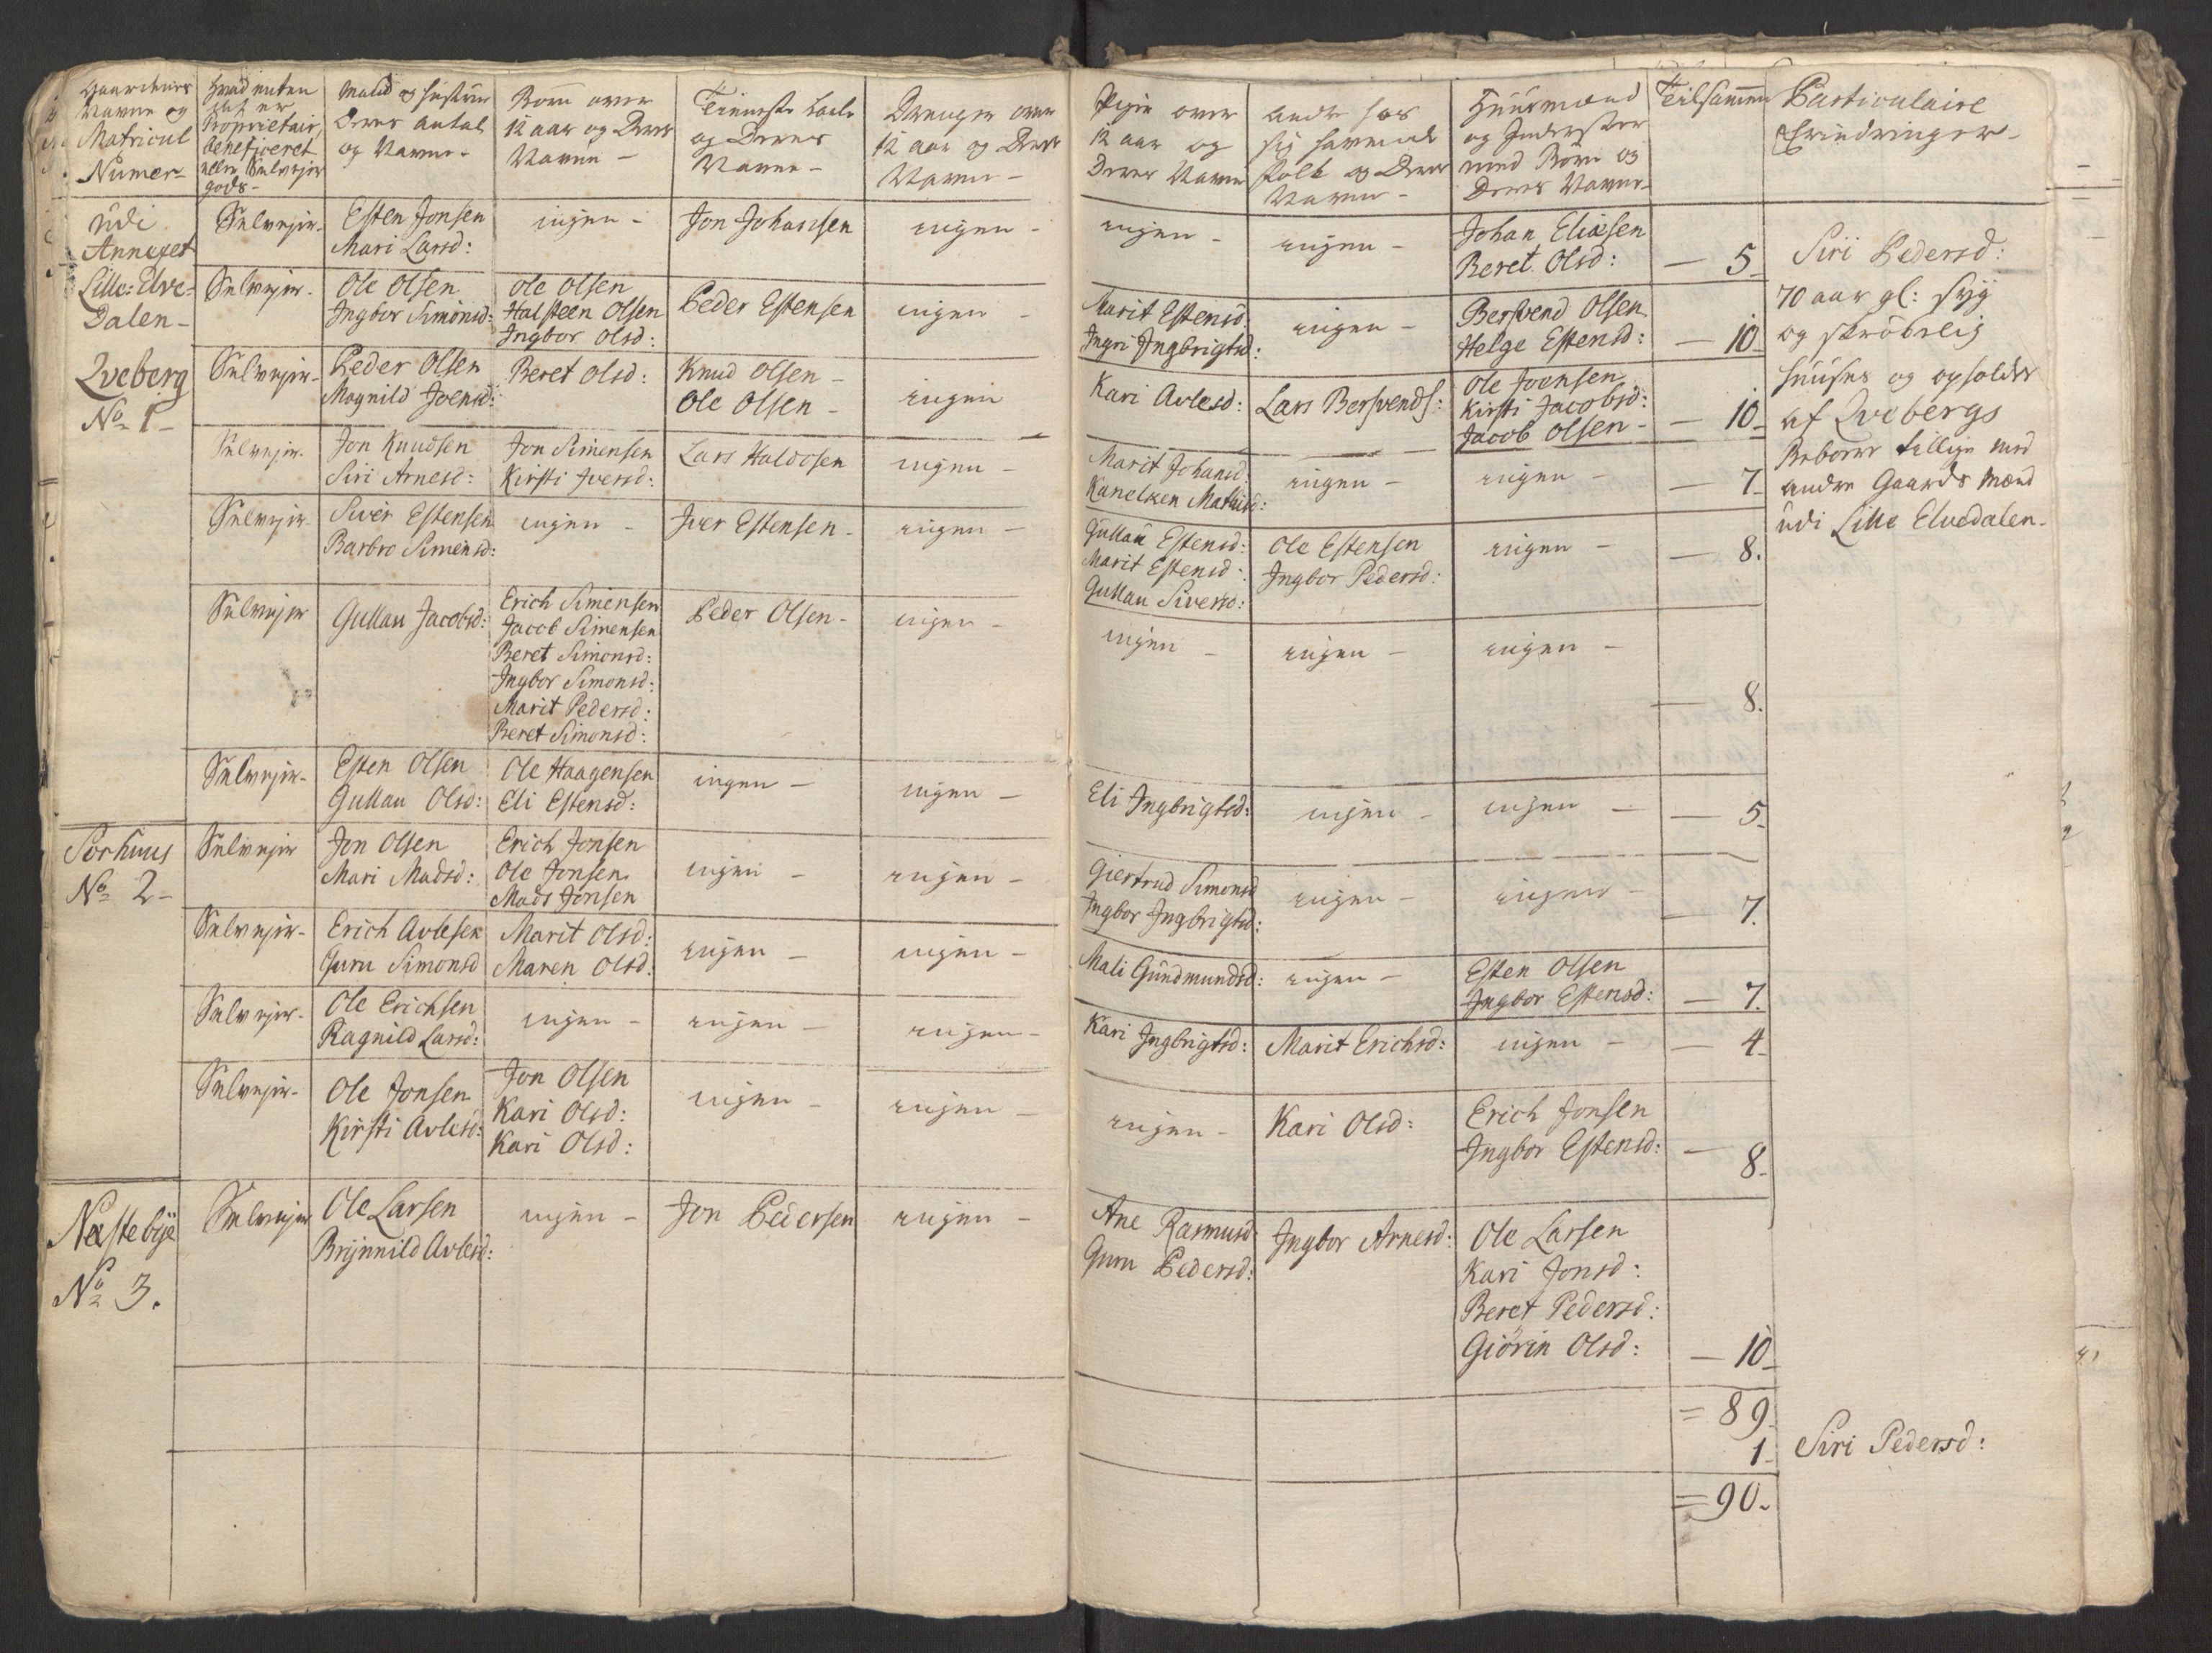 Gaardenes
Navne og
Matricul
Numer-
hvad enten
det er
Proprietair,
beneficeret
eller Selvejer
gods-
Mand og hustrue
Deres Antal
og Navne-
Børn over
12 aar og Deres
Navne-
Tieneste Karle
og Deres
Navne-
Drenger over
12 aar og Deres
Navne-
Piger over
12 aar og
Deres Navne
andre hos
sig havende
folk og Deres
Navne-
Huusmænd
og Inderster
med Børn og
Deres Navne-
Teilsammen
Particulaire
Erindringer-
udi
Annexet
Lille-Elve-
Dalen-
Qveberg
No 1-
Selvejer-
Esten Jonsen
Mari Larsd:
ingen-
Jon Johansen
ingen-
ingen-
ingen-
Johan Eliæsen
Beret Olsd:
- 5-
Selvejer-
Ole Olsen
Ingbor Simonsd:
Ole Olsen
Halsteen Olsen
Ingbor Olsd:
Peder Estensen
ingen-
Marit Estensd:
Ingri Ingbrigtsd:
ingen-
Bersvend Olsen
Helge Estensd:
- 10-
Selvejer-
Peder Olsen
Magnild Joensd:
Beret Olsd:
Knud Olsen-
Ole Olsen-
ingen
Kari Avlesd:
Lars Bersvends:
Ole Joensen
Kirsti Jacobsd:
Jacob Olsen-
- 10-
Selvejer-
Jon Knudsen
Siri Arnesd:
Jon Simensen
Kirsti Iversd:
Lars Haldosen
ingen-
Marit Johansd:
Kanelken Mathisd:
ingen-
ingen-
- 7-
Selvejer-
Siver Estensen
Barbro Simensd:
ingen-
Iver Estensen-
ingen-
Gullau Estensd:
Marit Estensd:
Gullau Siversd:
Ole Estensen
Ingbor Pedersd:
ingen-
- 8.
Selvejer
Gullau Jacobsd:
Erich Simensen
Jacob Simensen
Beret Simonsd:
Ingbor Simonsd:
Marit Pedersd:
Beret Simonsd:
Peder Olsen-
ingen-
ingen-
ingen-
ingen-
- 8.
Selvejer-
Esten Olsen
Gullau Olsd:
Ole Haagensen
Eli Estensd:
ingen-
ingen-
Eli Ingbrigtsd:
ingen-
ingen-
- 5-
Sorhuus
No 2-
Selvejer
Jon Olsen
Mari Madsd:
Erich Jonsen
Ole Jonsen
Mads Jonsen
ingen-
ingen-
Giertrud Simonsd
Ingbor Ingbrigtsd:
ingen-
ingen-
- 7.
Selvejer-
Erich Avlesen
Guru Simonsd
Marit Olsd:
Maren Olsd:
ingen-
ingen-
Mali Gundmundsd:
ingen-
Esten Olsen
Ingbor Estensd:
- 7.
Selvejer-
Ole Erichsen
Ragnild Larsd:
ingen-
ingen-
ingen-
Kari Ingbrigtsd:
Marit Erichsd:
ingen-
- 4-
Selvejer-
Ole Jonsen
Kirsti Avlesd:
Jon Olsen
Kari Olsd:
Kari Olsd:
ingen-
ingen-
ingen-
Kari Olsd:
Erich Jonsen
Ingbor Estensd:
- 8-
Næstebye
No 3.
Selvejer
Ole Larsen
Brynnild Avlesd:
ingen-
Jon Pedersen
ingen-
Ane Rasmusd:
Guru Pedersd:
Ingbor Arnesd:
Ole Larsen
Kari Jonsd:
Beret Pedersd:
Giörin Olsd:
- 10-
Siri Pedersd:
70 aar gl: syg
og skrøbelig
huuses og opholdes
af Qvebergs
Beboere tillige med
andre Gaards Mænd
udi Lille Elvedalen-
= 89-
1-
Siri Pedersd:
= 90-